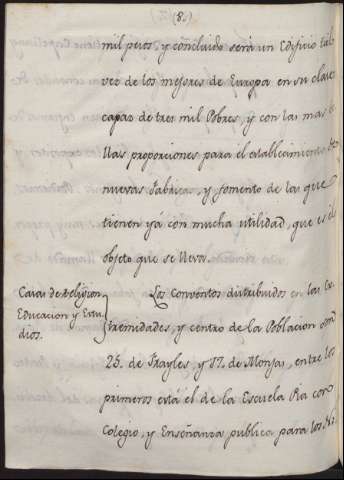 (8.)
mil pesos, y concluido será un Edificio tal
vez de los mejores de Europa en su clase
capaz de tres mil Pobres, y con las mas be
llas proporciones para el establecimiento de
nuevas Fabricas, y fomento de las que
tienen yá con mucha utilidad, que es el
objeto que se lleva.
Casas de Religion
Educacion y Estu
dios.
Los Conventos distribuidos en las Ex
tremidades, y centro de la Poblacion son
25. de Frayles, y 17. de Monjas, entre los
primeros está el de la Escuela Pia con
Colegio, y Enseñanza publica para los